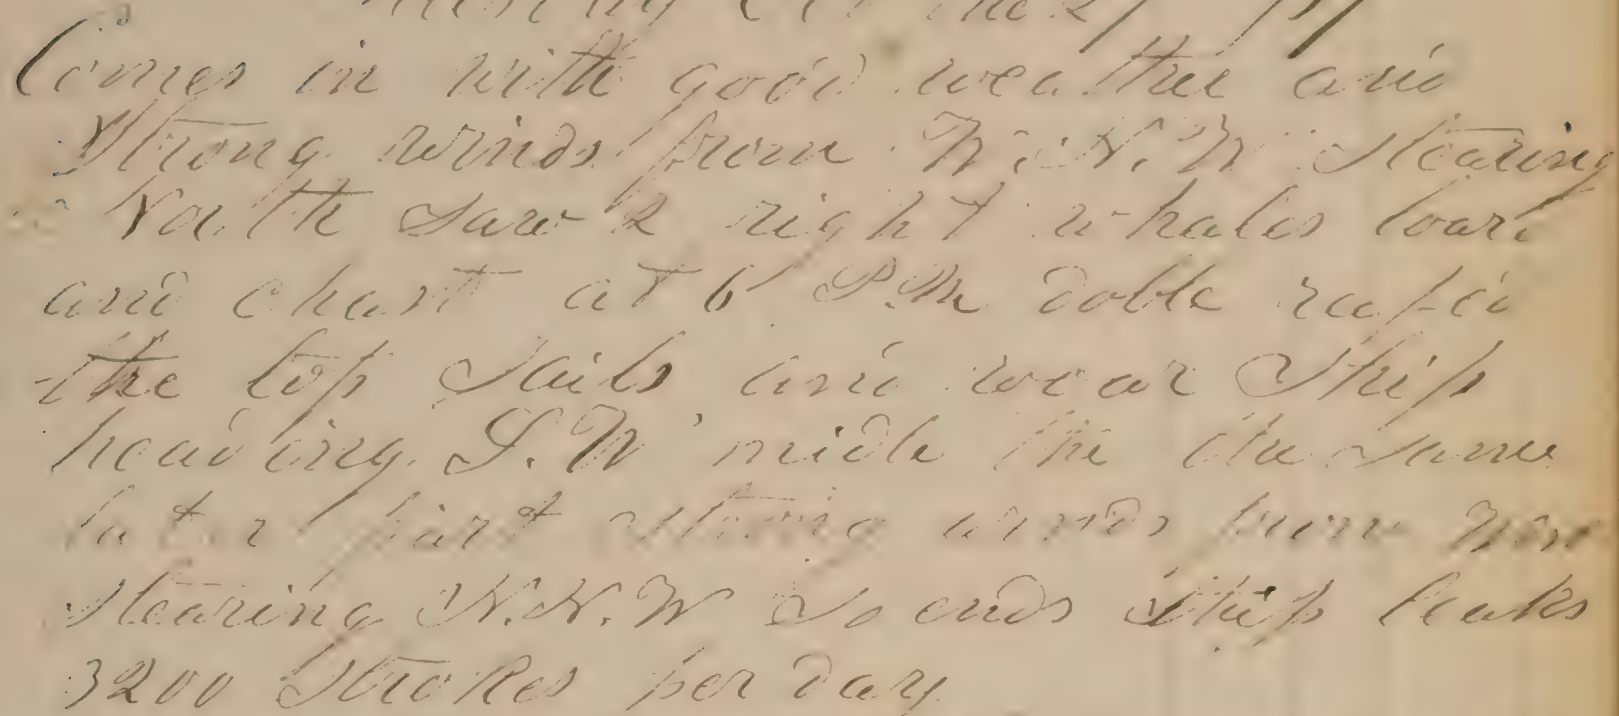 Comes in with good weather and
Strong winds from W.N.W Stearing
North Saw 2 right whales loard
and chast at 6 P.M doble reefed
the top Sails and wear Ship
heading S.W midle the the same
later part strong winds from
Stearing N.N.W So ends Ship leaks
3200 Strokes per day